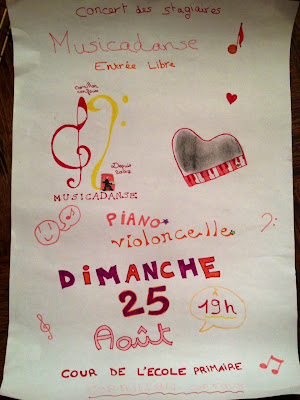 Concert des stagiaires
Musicadanse
Entrée Libre
Depuis
MUSICADANSE
PIANO
violoncelle
DIMANCHE
25
19h
Août
COUR DE L'ECOLE PRIMAIRE